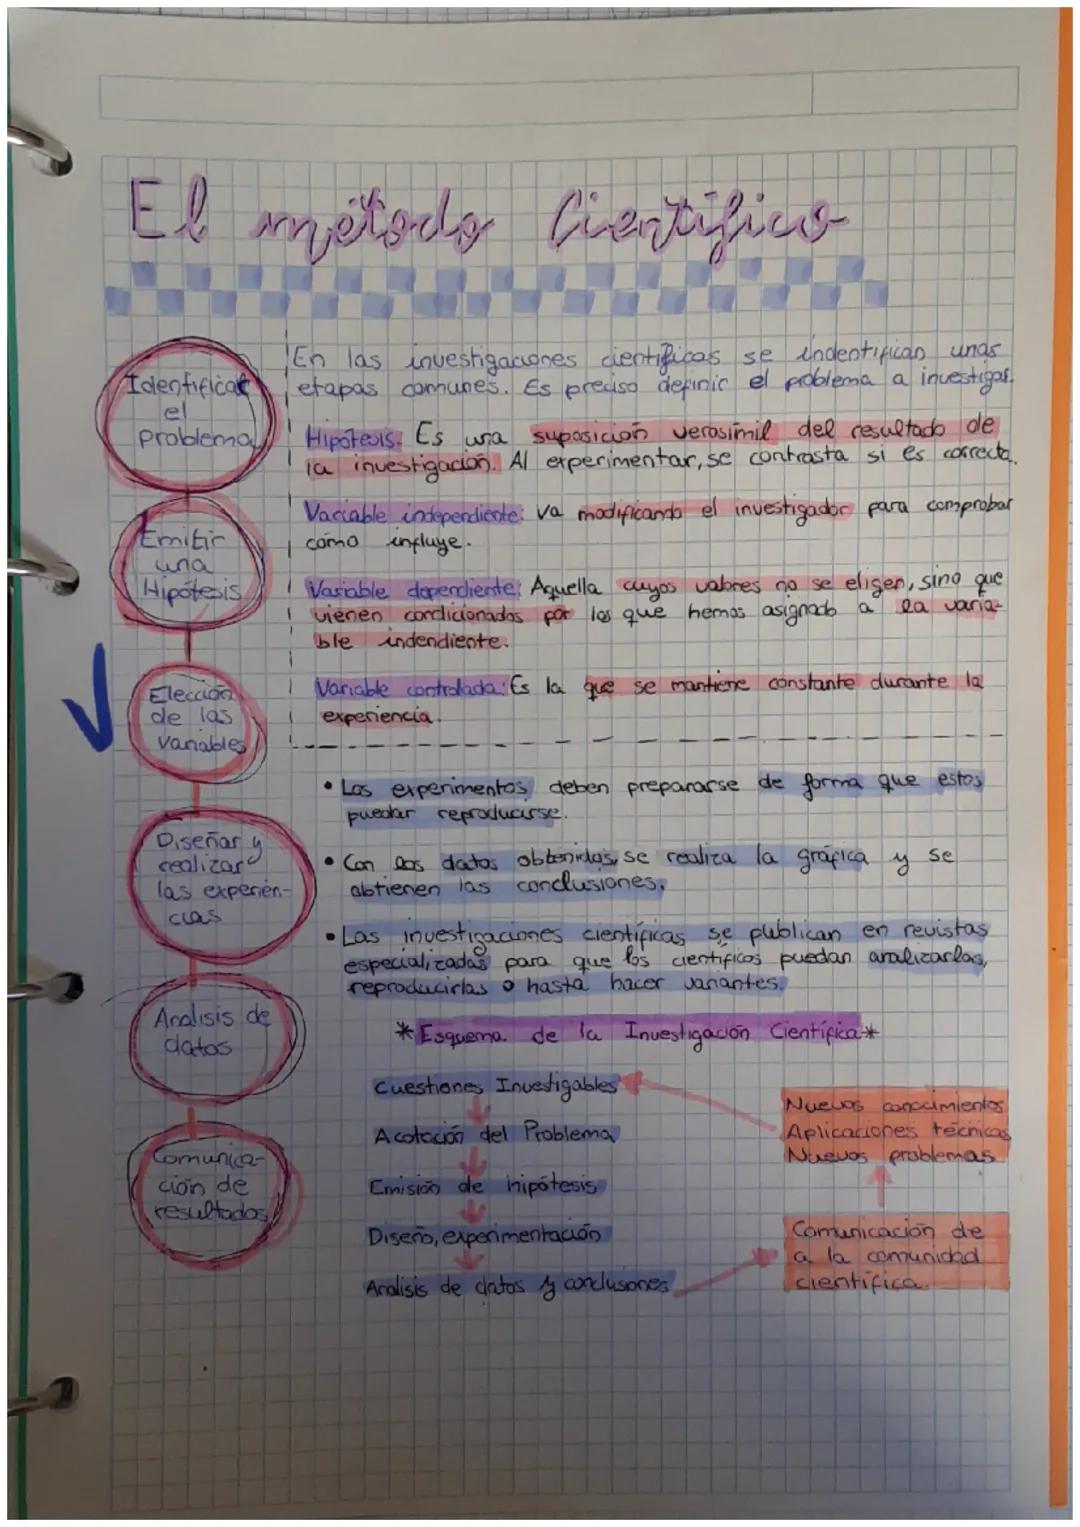 El método Científico
Identificar
el
problema
En las investigaciones científicas se indentifican unas
etapas comunes. Es preciso definir el problema a investigar.
Hipótesis: Es una suposición verosímil del resultado de
la investigación. Al experimentar, se contrasta si es correcta.
Emitir
una
Hipótesis
Variable independiente: va modificando el investigador para comprobar
como influye.
Variable dependiente: Aquella cuyos valores no se eligen, sino que
vienen condicionados por los que hemos asignado a la varia-
ble indendiente.
Elección
de las
variables
Variable controlada: Es la que se mantiene constante durante la
experiencia.
Diseñar y
realizar
las experien-
cias
• Los experimentos deben prepararse de forma que estos
puedan reproducirse.
• Con los datos obtenidos, se realiza la gráfica y se
obtienen las conclusiones.
• Las investigaciones científicas se publican en revistas
especializadas para que los científicos puedan analizarlas,
reproducirlas o hasta hacer variantes.
Analisis de
datos
Comunica-
ción de
resultados
*Esquema de la Investigación Científica*
Cuestiones Investigables
Acotación del Problema
Emisión de hipótesis
Diseño, experimentación
Analisis de datos y conclusiones
Comunicación de
a la comunidad
científica.
Nuevos conocimientos
Aplicaciones técnicas
Nuevos problemas